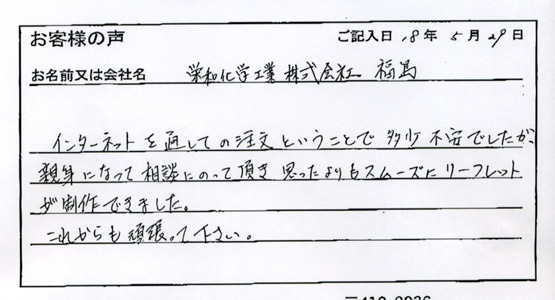 お客様の声 ご記入日 18 年 5 月 29 日
お名前又は会社名 栄和化学工業 株式会社 福島
インターネットを通しての注文ということで多少不安でしたが、
親身になって相談にのって頂き思ったよりもスムーズにリーフレット
が制作できました。
これからも頑張って下さい。